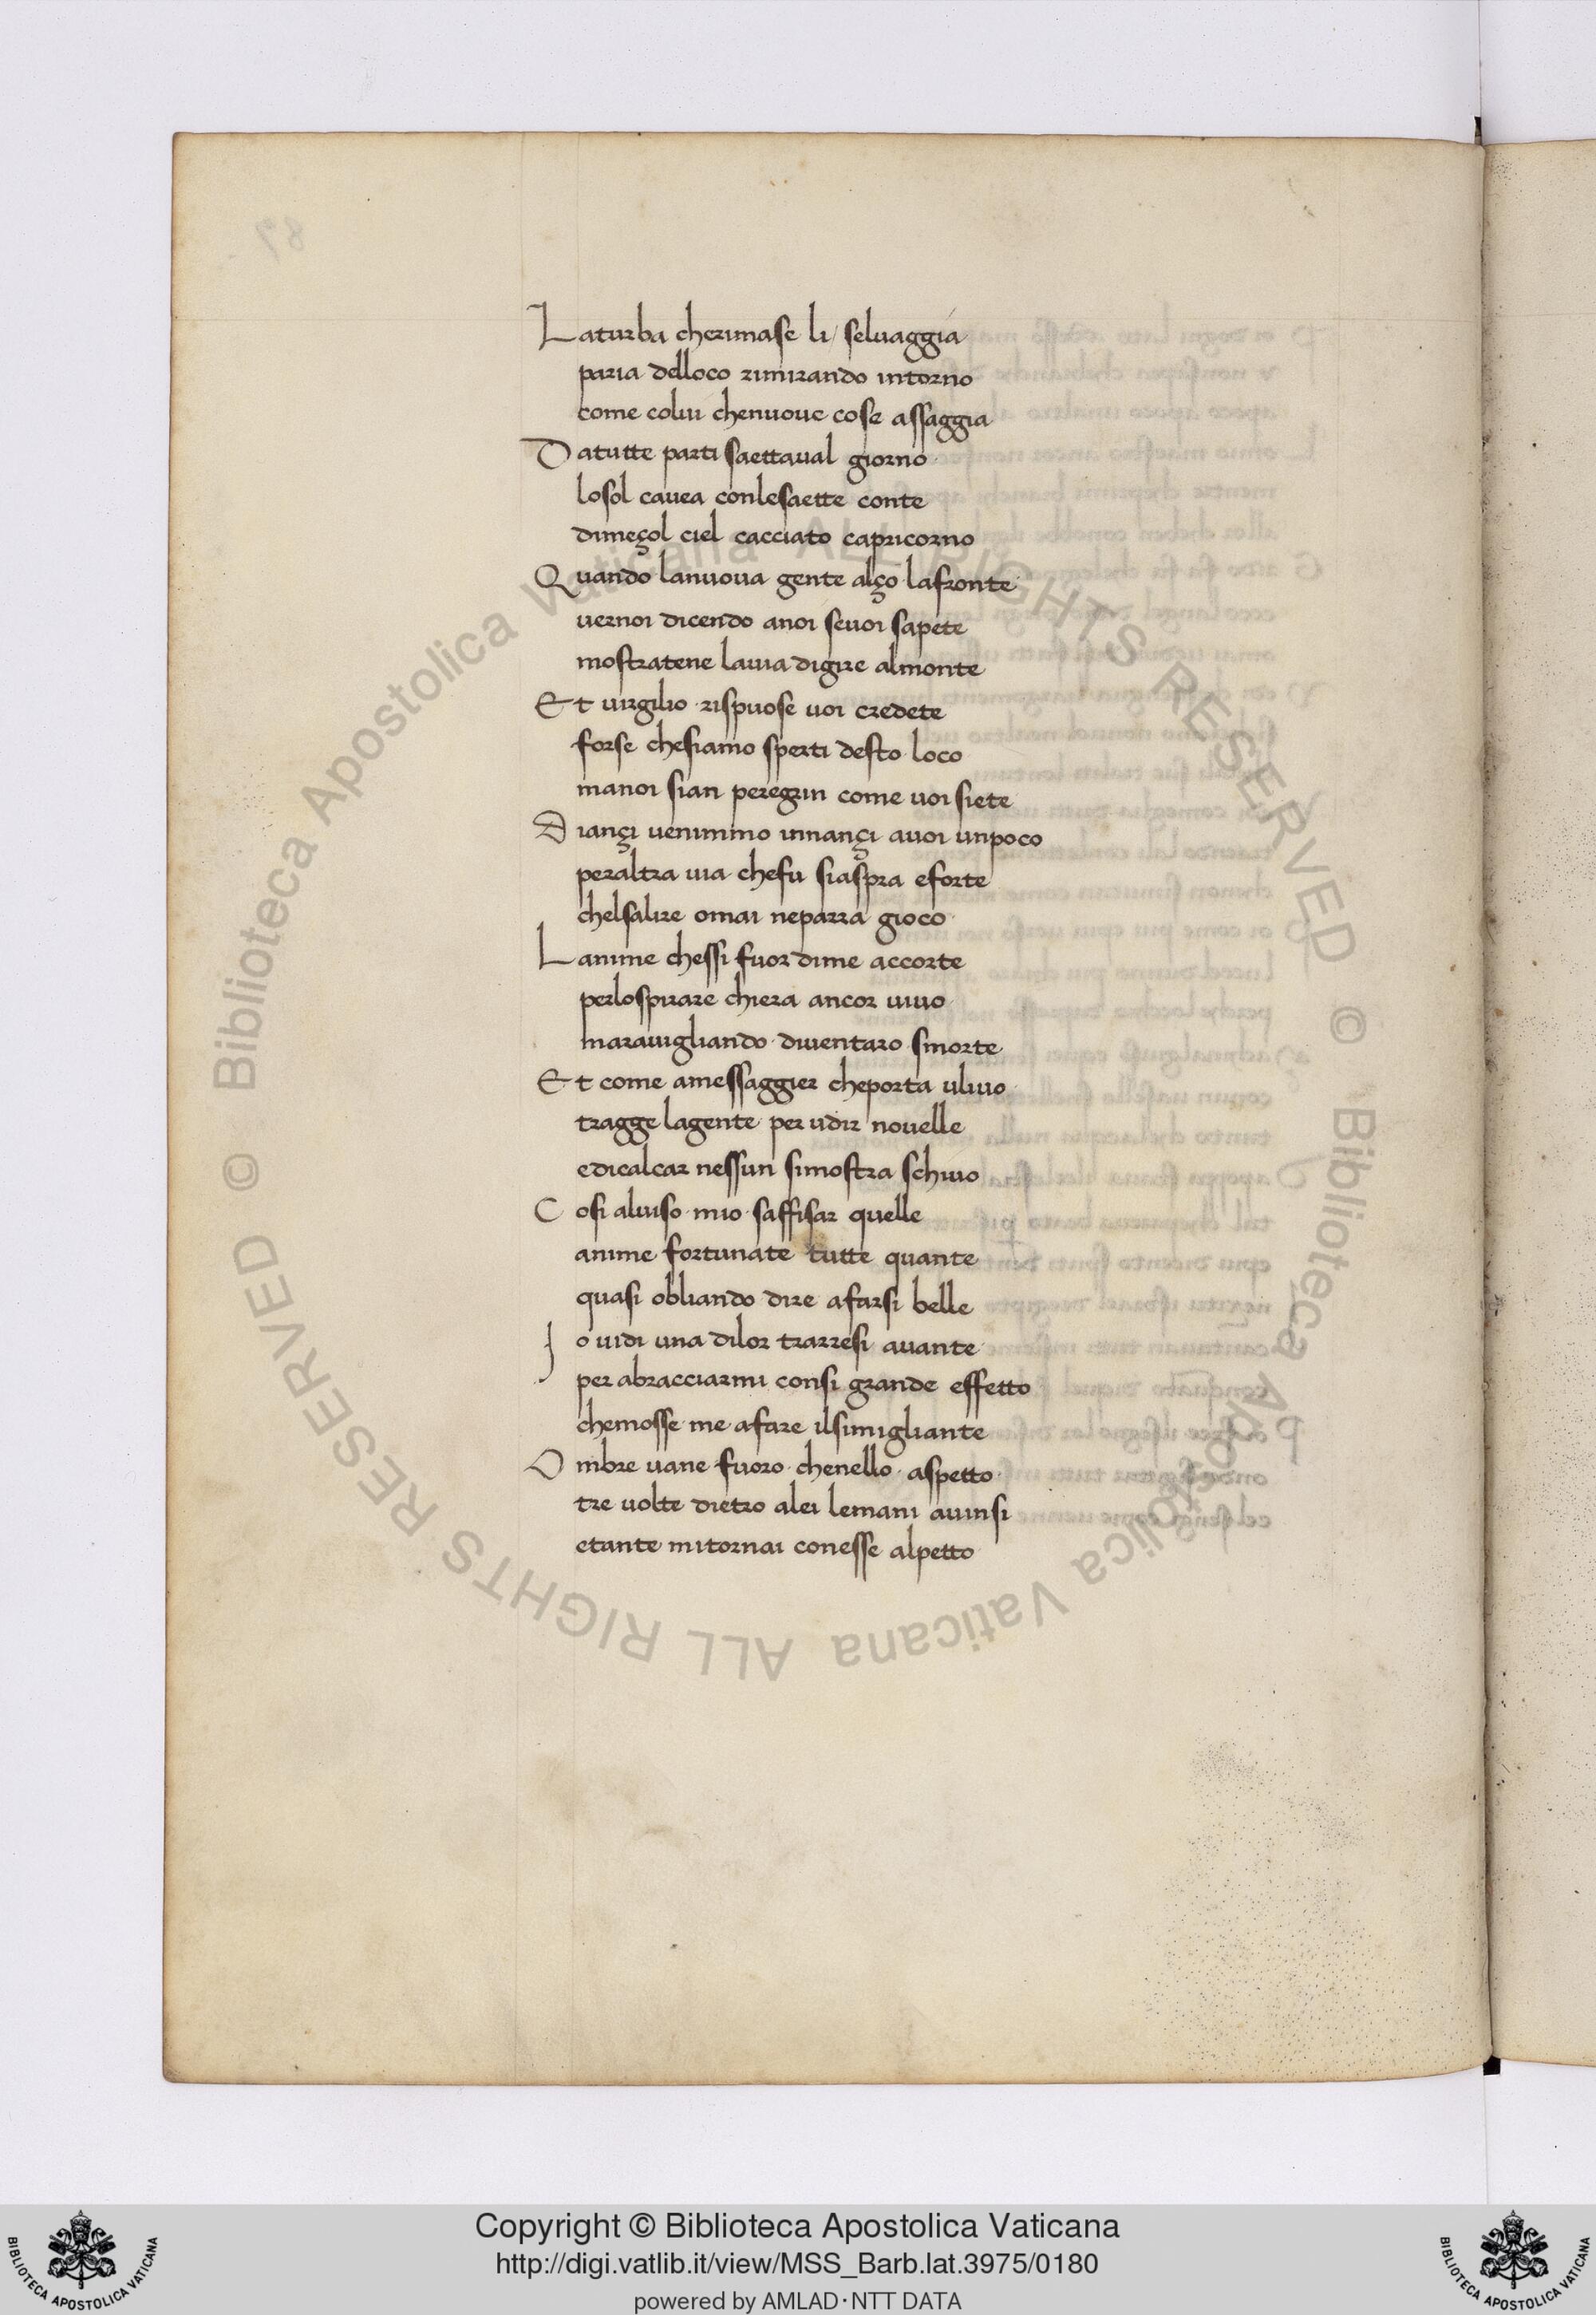 Laturba cherimase li / selvaggia
paria delloco rimirando intorno
come colui chenuove cose assaggia
Datutte parti saettaval giorno
losol cauea conlesaette conte
dimeçol ciel cacciato capricorno
Quando lanuova gente alço lafronte
uernoi dicendo anoi sevoi sapete
mostratene lauia digire almonte
Et uirgilio rispuose uoi credete
forse chesiamo sperti desto loco
manoi sian peregrin come uoi siete
Diançi uenimmo innançi auoi unpoco
peraltra uia chefu siaspra eforte
chelsalire omai neparra gioco
Lanime chessi fuor dime accorte
perlospirare chiera ancor uiuo
marauigliando diuentaro smorte
Et come amessaggier cheporta uliuo
tragge lagente per udir nouelle
edicalcar nessun simostra schiuo
Cosi aluiso mio saffisar quelle
anime fortunate tutte quante
quasi obliando dire afarsi belle
Io uidi una dilor trarresi auante
per abracciarmi consi grande effetto
chemosse me afare ilsimigliante
Ombre uane fuoro chenello aspetto
tre uolte dietro alei lemani auinsi
etante mitornai conesse alpetto
Copyright © Biblioteca Apostolica Vaticana
http://digi.vatlib.it/view/MSS_Barb.lat.3975/0180
powered by AMLAD·NTT DATA
© Biblioteca Apostolica Vaticana ALL RIGHTS RESERVED
© Biblioteca Apostolica Vaticana ALL RIGHTS RESERVED
BIBLIOTECA APOSTOLICA VATICANA
BIBLIOTECA APOSTOLICA VATICANA